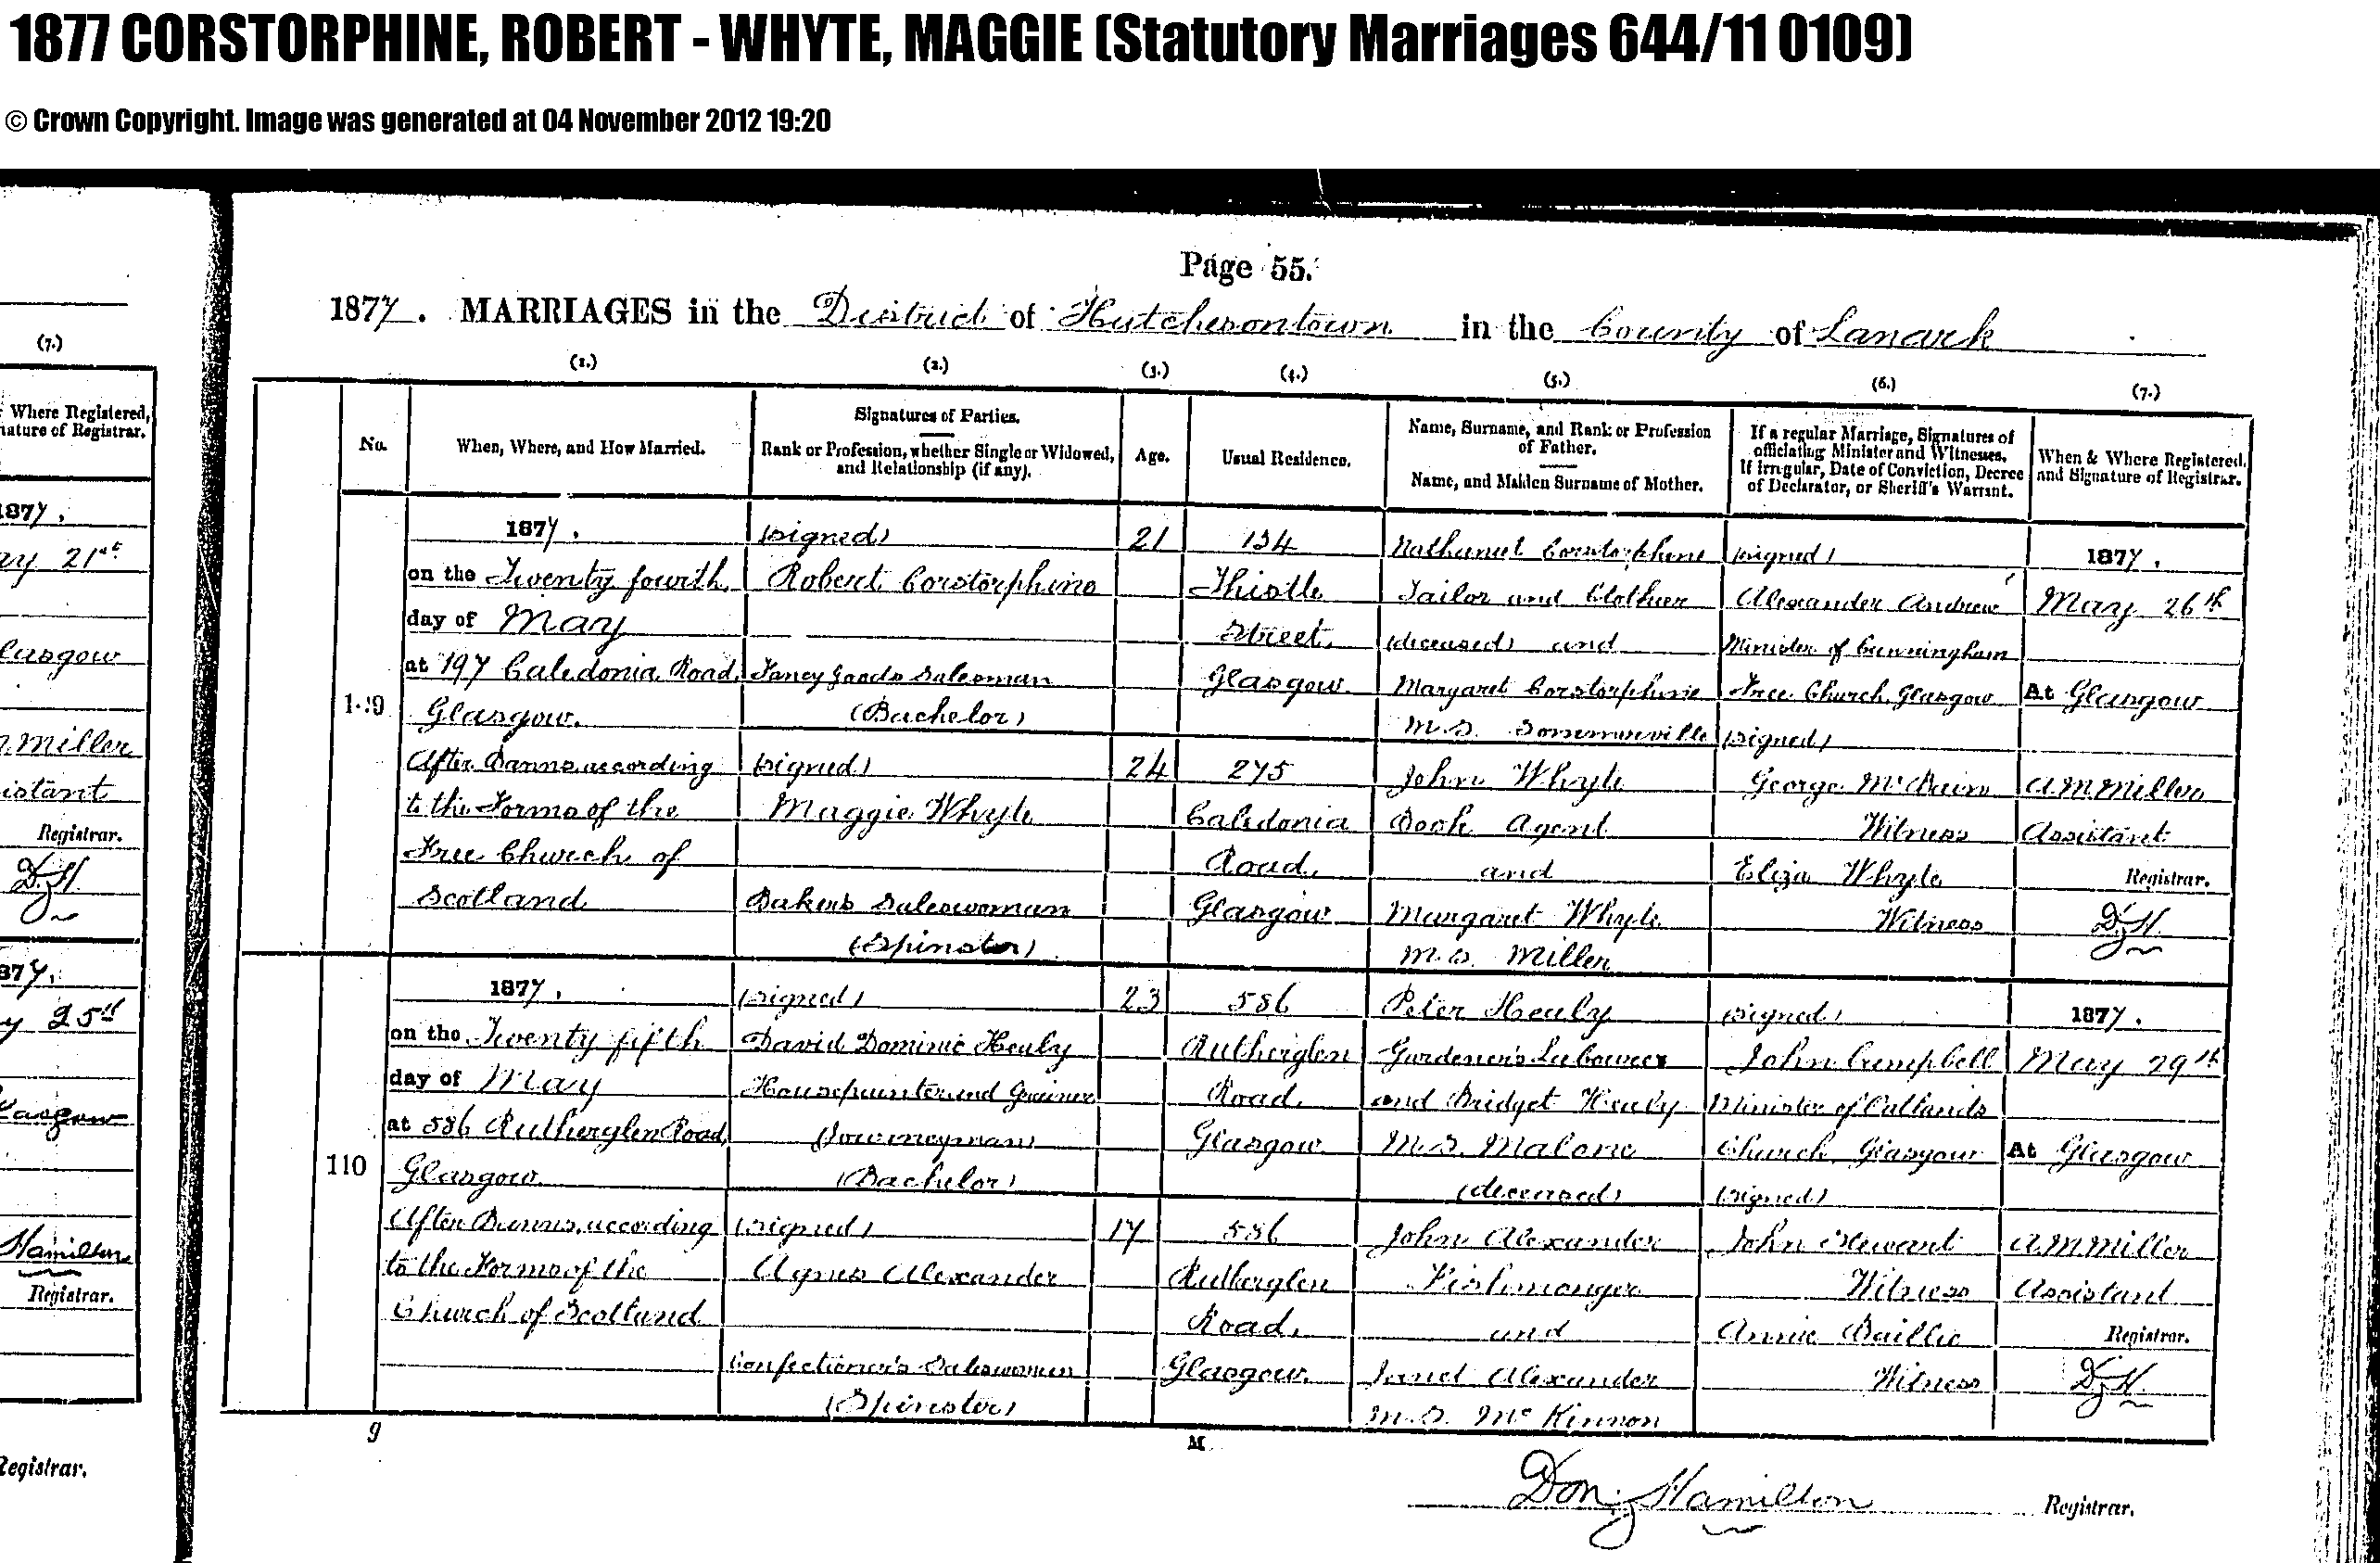 1877 CORSTORPHINE, ROBERT - WHYTE, MAGGIE (Statutory Marriages 644/11 0109)
© Crown Copyright. Image was generated at 04 November 2012 19:20
Page 55.
1877. MARRIAGES in the District of Hutchesontown in the County of Lanark
(7.)
Where Registered,
nature of Registrar.
1877.
ay 21st
lasgow
Miller
istant
Registrar.
D.H.
877.
y 25th
lasgow
Hamilton
Registrar.
Registrar.
(1.) (2.) (3.) (4.) (5.) (6.) (7.)
No.
When, Where, and How Married.
Signatures of Parties.
Rank or Profession, whether Single or Widowed,
and Relationship (if any).
Age.
Usual Residence.
Name, Surname, and Rank or Profession
of Father.
Name, and Maiden Surname of Mother.
If a regular Marriage, Signatures of
officiating Minister and Witnesses.
If irregular, Date of Conviction, Decree
of Declarator, or Sheriff's Warrant.
When & Where Registered,
and Signature of Registrar.
109
1877.
on the Twenty fourth
day of May
at 197 Caledonia Road,
Glasgow.
After Banns, according
to the Forms of the
Free Church of
Scotland
(signed)
Robert Corstorphine
Fancy Goods Salesman
(Bachelor)
(signed)
Maggie Whyte
Bakers Saleswoman
(Spinster)
21
24
134
Thistle
Street,
Glasgow
275
Caledonia
Road,
Glasgow
Nathaniel Corstorphine
Tailor and Clothier
(deceased) and
Margaret Corstorphine
M.S. Sommerville
John Whyte
Book Agent
and
Margaret Whyte
M.S. Miller
(signed)
Alexander Andrew
Minister of Cunningham
Free Church, Glasgow
(signed)
George McBain
Witness
Eliza Whyte
Witness
1877.
May 26th
At Glasgow
A.M. Miller
Assistant
Registrar.
D.H.
110
1877.
on the Twenty fifth
day of May
at 586 Rutherglen Road,
Glasgow
After Banns, according
to the Forms of the
Church of Scotland
(signed)
David Dominic Healy
Housepainter and Grainer
(Journeyman)
(Bachelor)
(signed)
Agnes Alexander
Confectioner's Saleswoman
(Spinster)
23
17
586
Rutherglen
Road,
Glasgow
586
Rutherglen
Road,
Glasgow.
Peter Healy
Gardener's Labourer
and Bridget Healy
M.S. Malone
(deceased)
John Alexander
Fishmonger
and
Janet Alexander
M.S. McKinnon
(signed)
John Campbell
Minister of Oatlands
Church, Glasgow
(signed)
John Stewart
Witness
Annie Baillie
Witness
1877.
May 29th
At Glasgow
A.M. Miller
Assistant
Registrar.
D.H.
9
M
Don. Hamilton Registrar.